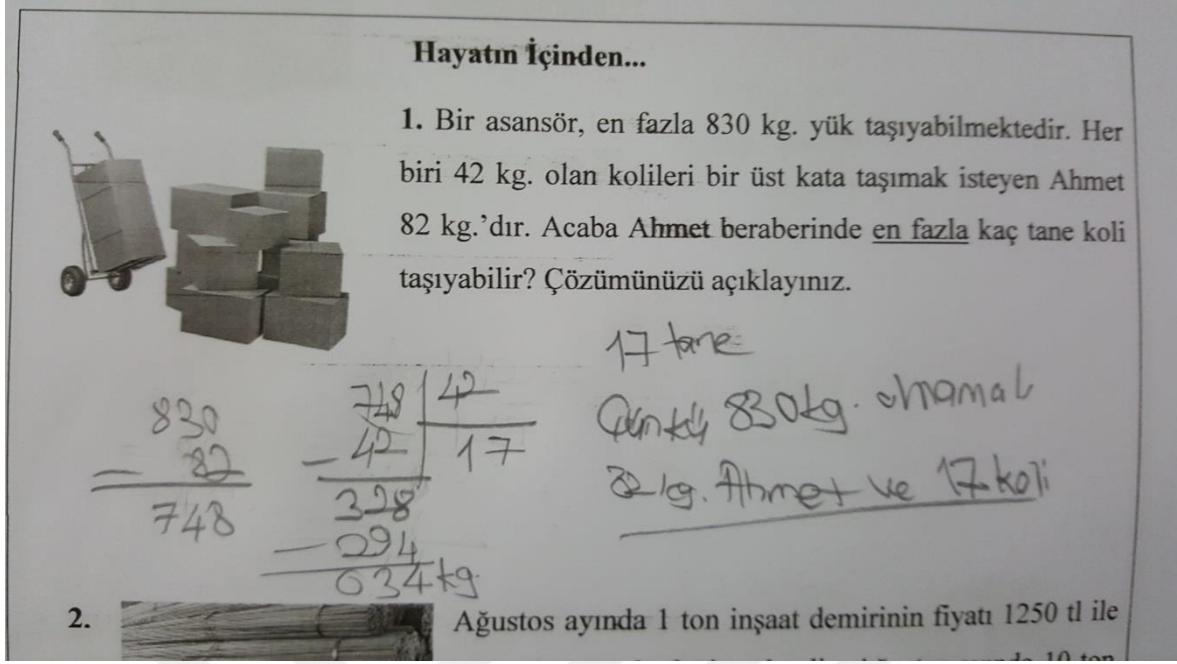 Hayatın İçinden...
1. Bir asansör, en fazla 830 kg. yük taşıyabilmektedir. Her
biri 42 kg. olan kolileri bir üst kata taşımak isteyen Ahmet
82 kg.'dır. Acaba Ahmet beraberinde en fazla kaç tane koli
taşıyabilir? Çözümünüzü açıklayınız.
17 tane
Çünkü 830kg. olmamalı
82 kg. Ahmet ve 17 koli
830
- 82
748
748 | 42
- 42 | 17
328
- 294
034 kg.
2. Ağustos ayında 1 ton inşaat demirinin fiyatı 1250 tl ile
10 ton